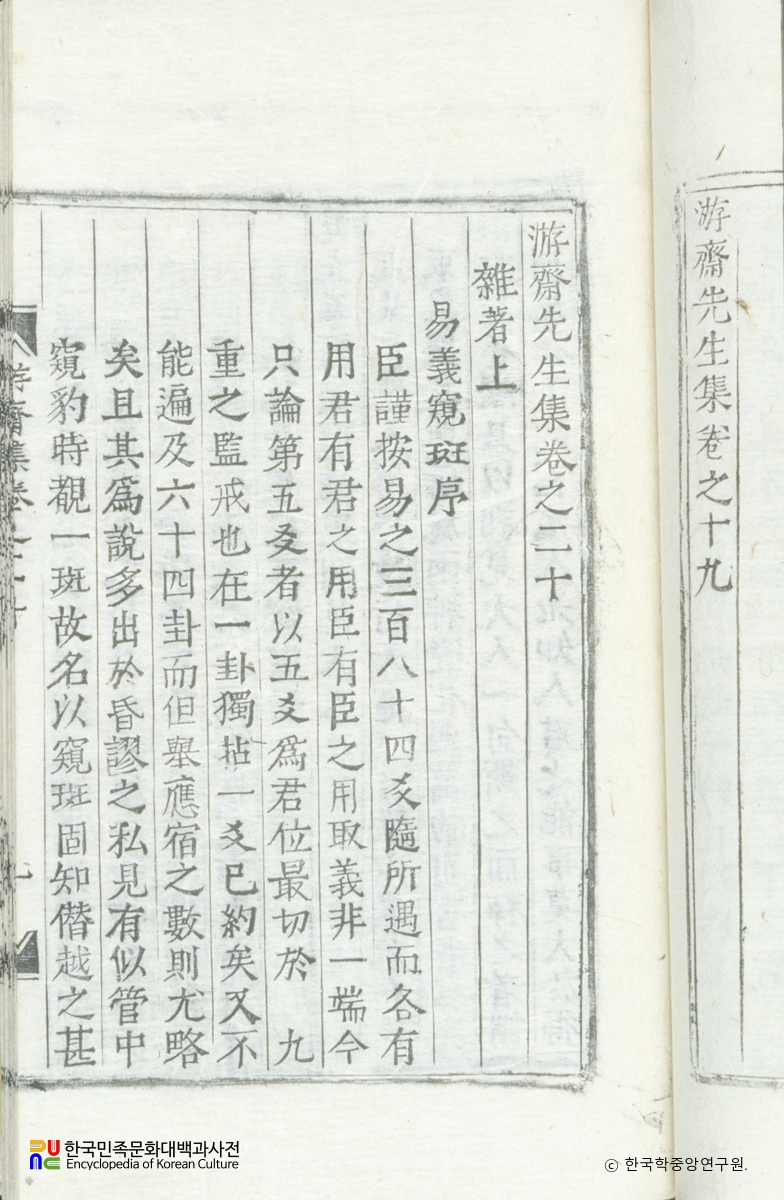 游齋先生集卷之十九
游齋先生集卷之二十
雜著上
易義窺斑序
臣謹按易之三百八十四爻隨所遇而各有
用君有君之用臣有臣之用取義非一端今
只論第五爻者以五爻爲君位最切於 九
重之監戒也在一卦獨拈一爻已約矣又不
能遍及六十四卦而但擧應宿之數則尤略
矣且其爲說多出於昏謬之私見有似管中
窺豹時覩一斑故名以窺斑固知僭越之甚
游齋集卷之二十
한국민족문화대백과사전
Encyclopedia of Korean Culture
ⓒ 한국학중앙연구원.